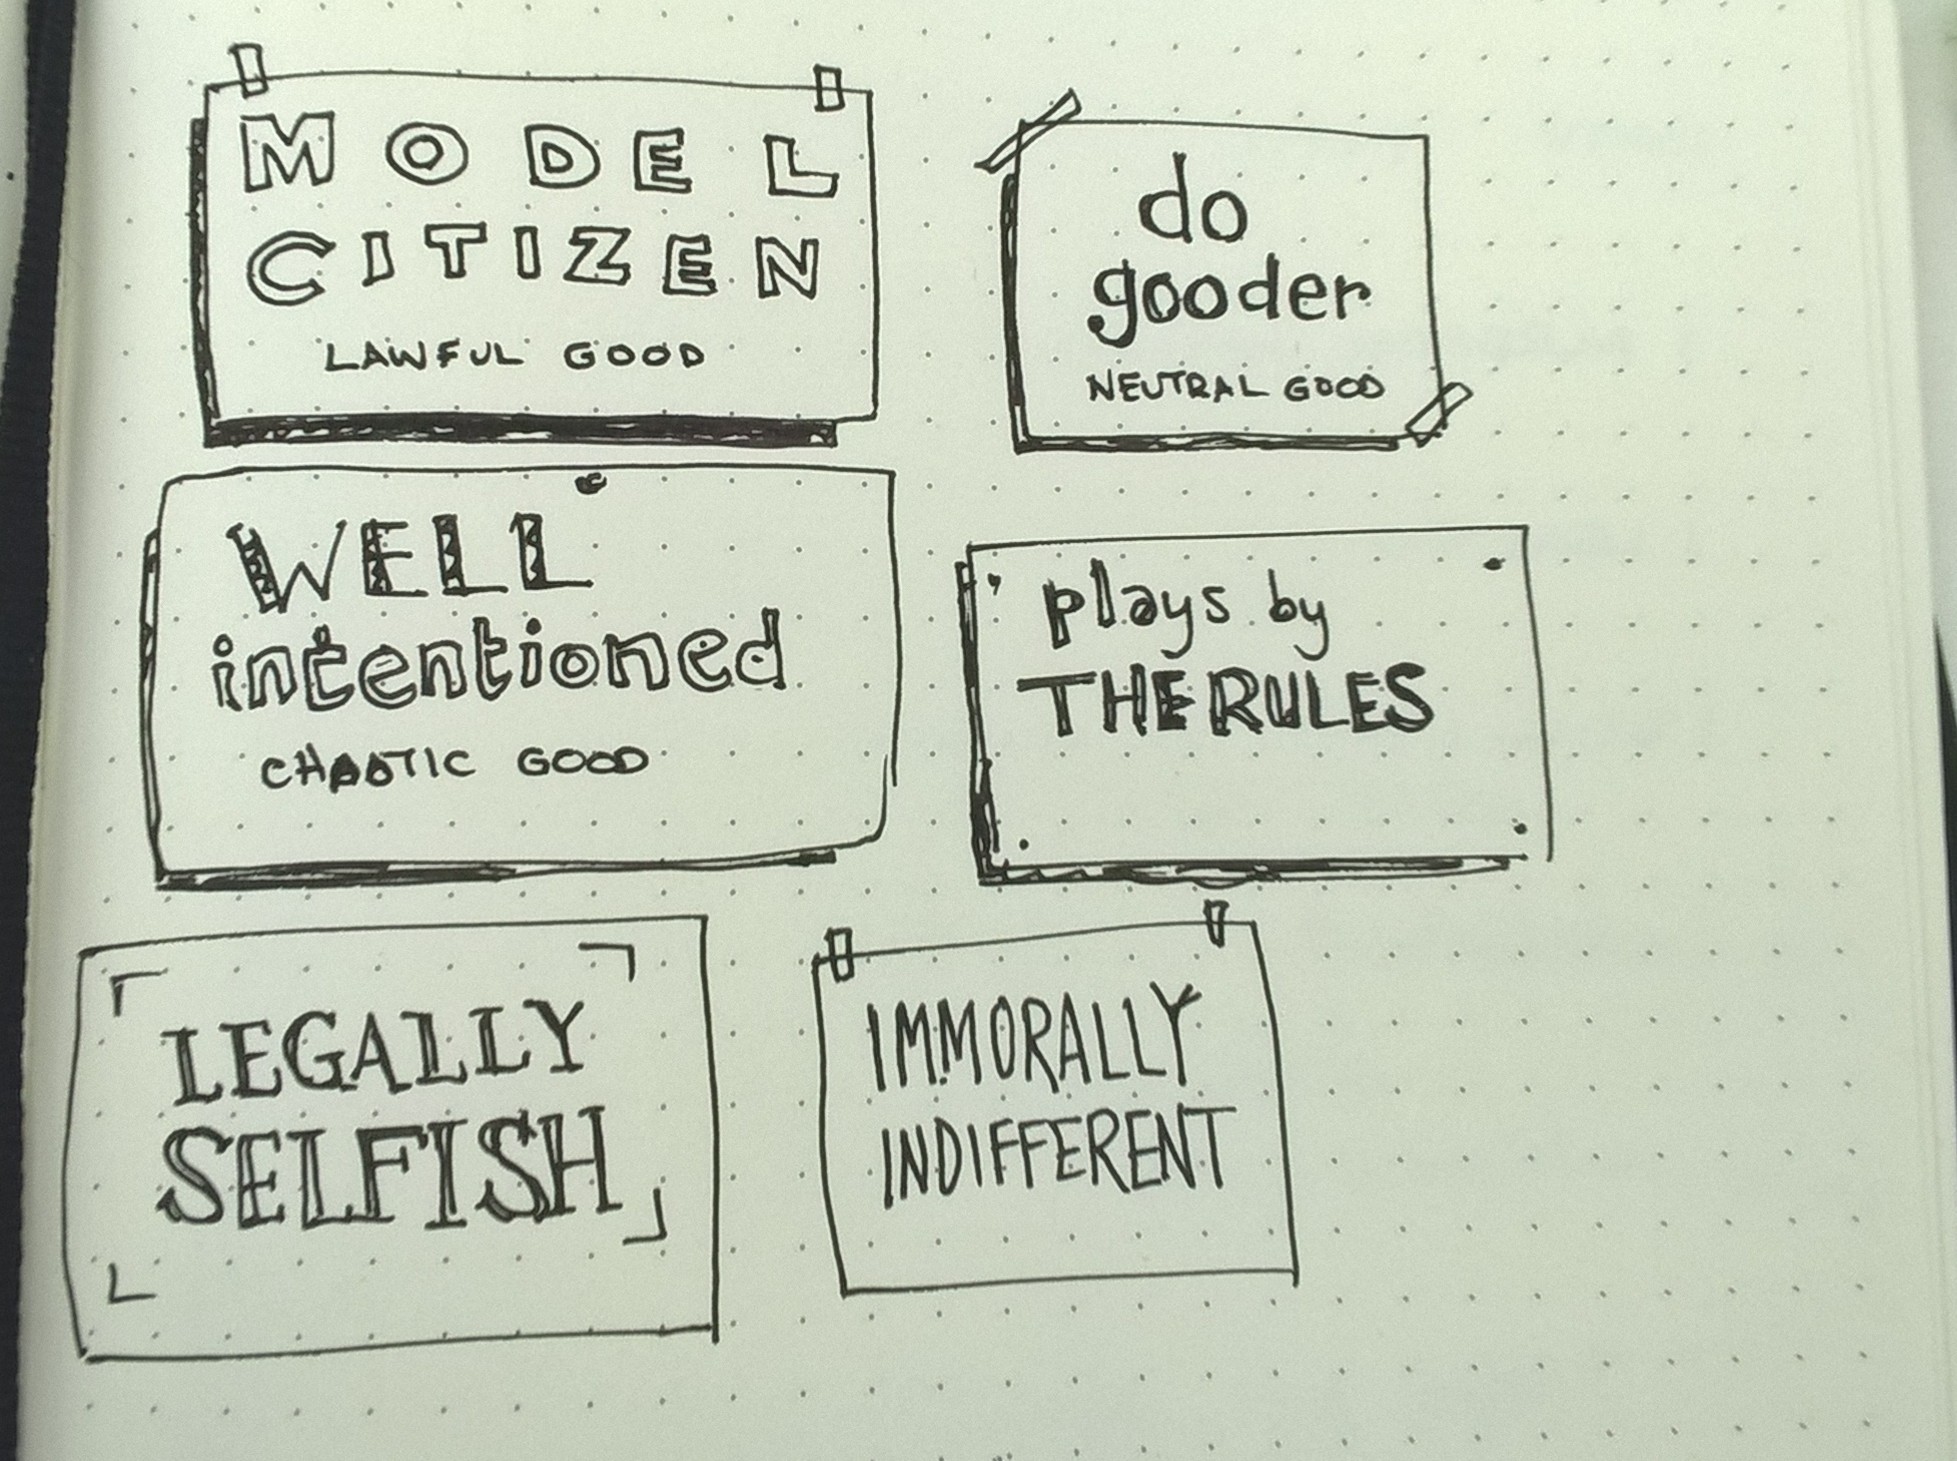 MODEL
CITIZEN
LAWFUL GOOD
do
gooder
NEUTRAL GOOD
WELL
intentioned
CHAOTIC GOOD
plays by
THE RULES
LEGALLY
SELFISH
IMMORALLY
INDIFFERENT